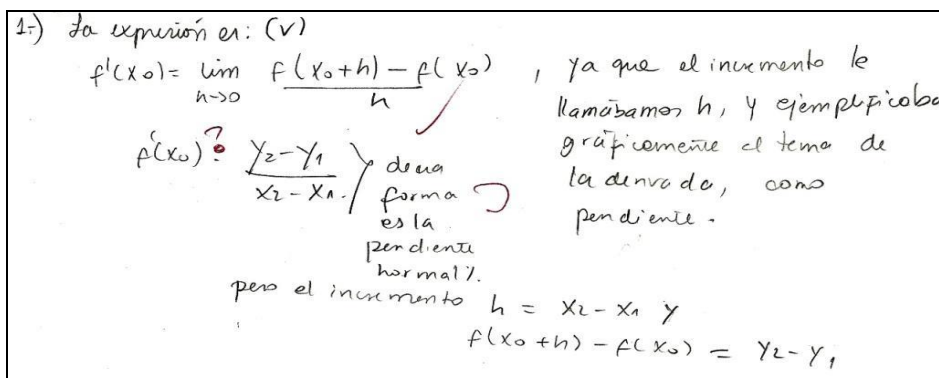 1-) La expresión es: (V)
f'(x0) = lim h->0 f(x0+h) - f(x0) / h , ya que el incremento le
llamábamos h, y ejemplificaba
gráficamente el tema de
la derivada, como
pendiente.
f'(x0) ? y2-y1 / x2-x1. } de una
forma
es la
pendiente
normal
pero el incremento h = x2-x1 y
f(x0+h) - f(x0) = y2-y1